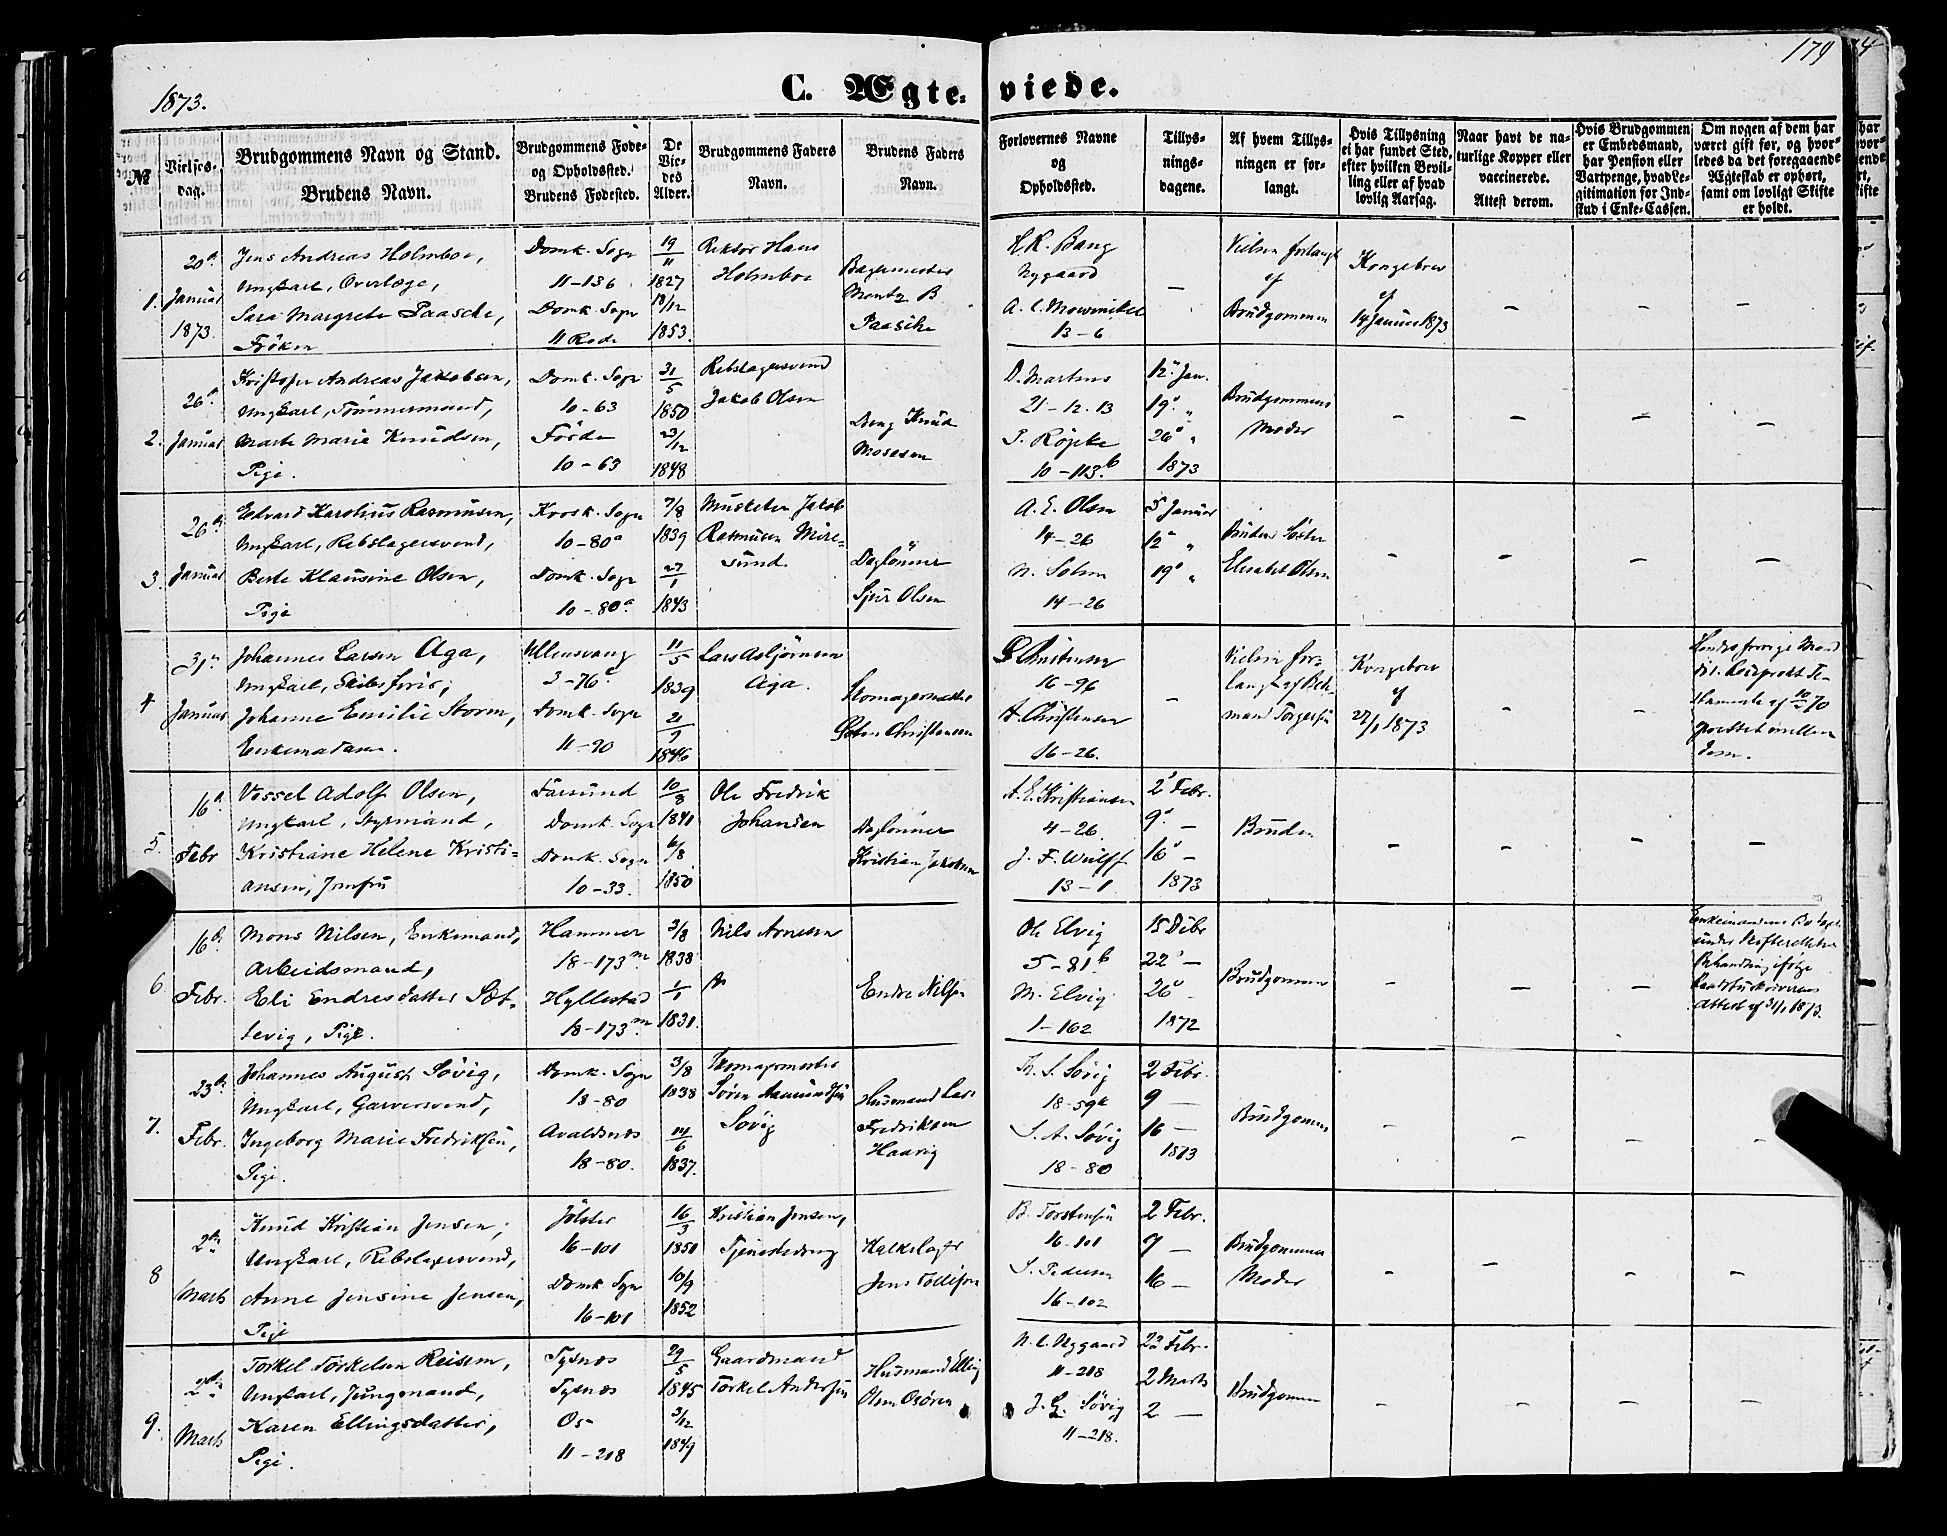 1873.
C. Ægte-viede.
179
№
Vielses-
dag.
Brudgommens Navn og Stand.
Brudens Navn.
Brudgommens Føde-
og Opholdssted.
Brudens Fødested.
De
Vie-
des
Alder.
Brudgommens Faders
Navn.
Brudens Faders
Navn.
Forlovernes Navne
og
Opholdssted.
Tillys-
nings-
dagene.
Af hvem Tillys-
ningen er for-
langt.
Hvis Tillysning
ei har fundet Sted,
efter hvilken Bevil-
ling eller af hvad
lovlig Aarsag.
Naar havt de na-
turlige Kopper eller
vaccinerede.
Attest derom.
Hvis Brudgommen
er Embedsmand,
har Pension eller
Vartpenge, hvad Le-
gitimation for Ind-
skud i Enke-Cassen.
Om nogen af dem har
været gift før, og hvor-
ledes da det foregaaende
Ægteskab er ophørt,
samt om lovligt Skifte
er holdt.
1.
20de
Januar
1873.
Jens Andreas Holmboe,
Ungkarl, Overlæge,
Sara Margrete Paasche,
Frøken
Domk. Sogn
11-136
Domk. Sogn
11 Rode
19/11
1827
18/12
1853.
Rektor Hans
Holmboe
Bagermester
Mentz B
Paasche
H.K. Bang
Nygaard
A. C. Mowinckel
13-6
–
Vielsen forlangt
af
Brudgommen
Kongebrev
af
14 Januar 1873
–
–
–
2.
26de
Januar
Kristofer Andreas Jakobsen,
Ungkarl, Tømmermand,
Marte Marie Knudsen,
Pige.
Domk. Sogn
10-63
Førde
10-63
31/5
1850
23/12
1848
Rebslagersvend
Jakob Olsen
Dreng Knud
Mosesen
D. Martens
21-12.13
P. Röpke
10-113.b
12te Jan.
19de "
26de "
1873
Brudgommens
Moder
–
–
–
–
3.
26de
Januar
Edvard Karolius Rasmussen,
Ungkarl, Rebslagersvend,
Berte Klausine Olsen,
Pige
Korsk. Sogn
10-80a
Domk. Sogn
10-80a
7/8
1839
27/1
1843
Musketer Jakob
Rasmusen Mire-
sund.
Daglønner
Sjur Olsen
A. E. Olsen
14-26
N. Solem
14-26
5 Januar
12te "
19de "
Brudens Søster
Elesabet Olsen
–
–
–
–
4
31te
Januar
Johannes Larsen Aga,
Ungkarl, Skibsfører,
Johanne Emilie Storm,
Enkemadam.
Ullensvang
2-76c
Domk. Sogn
11-90
11/5
1839
21/9
1846
Lars Asbjørnsen
Aga.
Skomagermester
Christensen
Christensen
16-96
A. Christensen
16-26.
–
Vielsen for-
langt af
Kongebrev
af
27/1 1873
–
–
Hendes forrige Mand
5.
16de
Febr
Vessel Adolf Olsen,
Ungkarl, Styrmand,
Kristiane Helene Kristi-
ansen, Jomfru
Farsund
Domk. Sogn
Domk. Sogn
10-33.
10/8
1841
6/8
1850
Ole Fredrik
Johansen
Daglønner
Kristian Jakobsen
A. E. Kristiansen
4-26
J. F. Wulff
13-1
2den Febr.
9de –
16de –
1873
Bruden
–
–
–
–
6
16de
Febr.
Mons Nilsen, Enkemand,
Arbeidsmand,
Eli Endresdatter Sæt-
levig, Pige.
Hammer
18-173m
Hyllestad
18-173m
3/8
1838
1/1
1831.
Nils Arnesen
Endre Nilsen
Ole Elvig
5-81b
M. Elvig
1-102
15 Dcbr
22de –
26de –
1872
Brudgommen
–
–
–
Attest af 31/1 1873.
7.
23de
Febr.
Johannes August Søvig,
Ungkarl, Garversvend,
Ingeborg Marie Fredriksen,
Pige.
Domk. Sogn
18-80
Avaldsnæs
18-80.
3/8
1838
14/6
1837.
Skomagermester
Søren Aamundsen
Søvig
Husmand Lars
Fredriksen
Haavig
S. Søvig
18-59a
S. A. Søvig
18-80
2 Febr.
9 –
16 –
1873
Brudgommen
–
–
–
–
8
2den
Marts
Knud Kristian Jensen,
Ungkarl, Rebslagersvend,
Anne Jensine Jensen,
Pige
Jølster
16-101
Domk Sogn
16-101
16/3
1850
10/9
1852
Kristian Jensen,
Tjenestedreng
Kalkslager
Jens Tollefsen
B. Torstensen
16-101
S. Pedersen
16-102
2 Febr.
9 –
16 –
Brudgommens
Moder
–
–
–
–
9.
2den
Marts
Torkel Torkelsen Reisem,
Ungkarl, Jungmand,
Karen Ellingsdatter,
Pige.
Tysnæs
Tysnæs
Os
11-218
29/5
1845
3/12
1849
Gaardmand
Torkel Andersen
Husmand Elling
Olsen Osøren
N. C. Nygaard
11-218
J. G. Søvig
11-218.
23 Febr.
2 Marts
2 –
Brudgommen
–
–
–
–